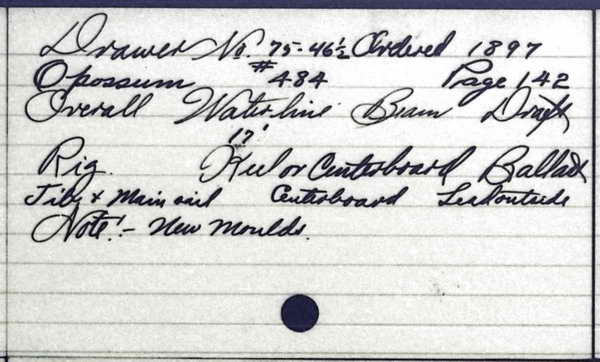 Drawer No. 75-46½ Ordered 1897
Opossum #484 Page 142
Overall Waterline Beam Draft
17'
Rig. Keel or Centerboard Ballast
Jib & Mainsail Centerboard Lead outside
Note:- New Moulds.